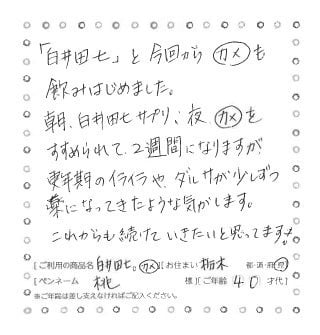 「白井田七」と今回からカメも
飲みはじめました。
朝、白井田七サプリ、夜カメを
すすめられて、2週間になりますが、
更年期のイライラや、ダルサが少しずつ
薬になってきたような気がします。
これからも続けていきたいと思ってます。
[ご利用の商品名 白井田七。カメ ][お住まい 栃木 都・道・府・県]
[ペンネーム 桃 様][ご年齢 40 才代]
※ご年齢は差し支えなければご記入ください。